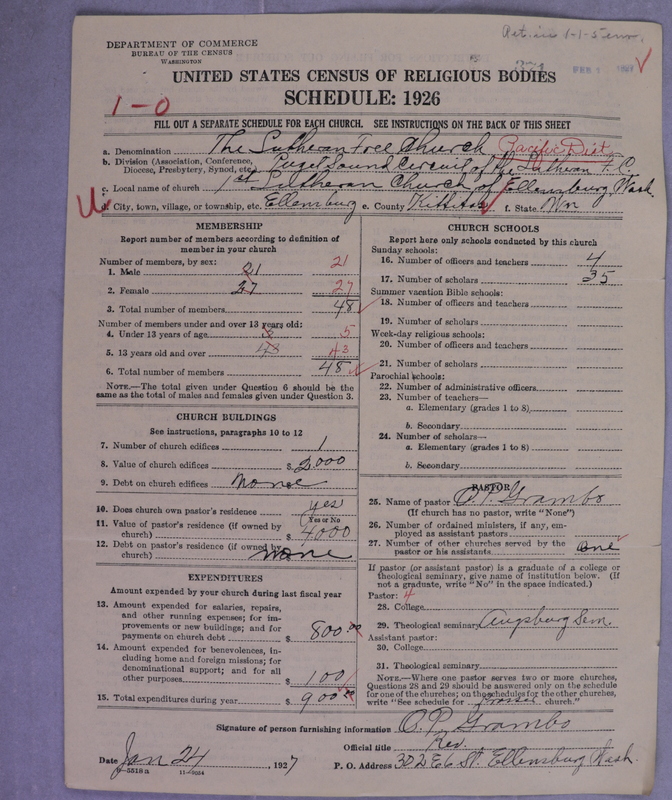 Ret. in 1-1-5 env.
DEPARTMENT OF COMMERCE
BUREAU OF THE CENSUS
WASHINGTON
FEB 1 1927
UNITED STATES CENSUS OF RELIGIOUS BODIES
SCHEDULE: 1926
1-0
FILL OUT A SEPARATE SCHEDULE FOR EACH CHURCH. SEE INSTRUCTIONS ON THE BACK OF THIS SHEET
a. Denomination The Lutheran Free Church, Pacific Dist.
b. Division (Association, Conference, Diocese, Presbytery, Synod, etc.) Puget Sound Circuit of the Lutheran F. C.
c. Local name of church 1st Lutheran Church of Ellensburg, Wash.
d. City, town, village, or township, etc. Ellensburg e. County Kittitas f. State Wn
MEMBERSHIP
Report number of members according to definition of member in your church
Number of members, by sex:
1. Male 21 21
2. Female 27 27
3. Total number of members 48
Number of members under and over 13 years old:
4. Under 13 years of age 5
5. 13 years old and over 43 43
6. Total number of members 48
NOTE.—The total given under Question 6 should be the same as the total of males and females given under Question 3.
CHURCH BUILDINGS
See instructions, paragraphs 10 to 12
7. Number of church edifices 1
8. Value of church edifices $ 2000
9. Debt on church edifices None
10. Does church own pastor's residence yes
(Yes or No)
11. Value of pastor's residence (if owned by church) $ 4000
12. Debt on pastor's residence (if owned by church) None
EXPENDITURES
Amount expended by your church during last fiscal year
13. Amount expended for salaries, repairs, and other running expenses; for improvements or new buildings; and for payments on church debt $ 800.00
14. Amount expended for benevolences, including home and foreign missions; for denominational support; and for all other purposes $ 100
15. Total expenditures during year $ 900.00
CHURCH SCHOOLS
Report here only schools conducted by this church
Sunday schools:
16. Number of officers and teachers 4
17. Number of scholars 35
Summer vacation Bible schools:
18. Number of officers and teachers
19. Number of scholars
Week-day religious schools:
20. Number of officers and teachers
21. Number of scholars
Parochial schools:
22. Number of administrative officers
23. Number of teachers—
a. Elementary (grades 1 to 8)
b. Secondary
24. Number of scholars—
a. Elementary (grades 1 to 8)
b. Secondary
PASTOR
25. Name of pastor O. P. Grambo
(If church has no pastor, write "None")
26. Number of ordained ministers, if any, employed as assistant pastors
27. Number of other churches served by the pastor or his assistants one
If pastor (or assistant pastor) is a graduate of a college or theological seminary, give name of institution below. (If not a graduate, write "No" in the space indicated.)
Pastor: 4
28. College
29. Theological seminary Augsburg Sem.
Assistant pastor:
30. College
31. Theological seminary
NOTE.—Where one pastor serves two or more churches, Questions 28 and 29 should be answered only on the schedule for one of the churches; on the schedules for the other churches, write "See schedule for church."
Signature of person furnishing information O. P. Grambo
Official title Rev.
Date Jan 24, 1927
P. O. Address 302 E 6 St. Ellensburg Wash.
5518a 11—9054